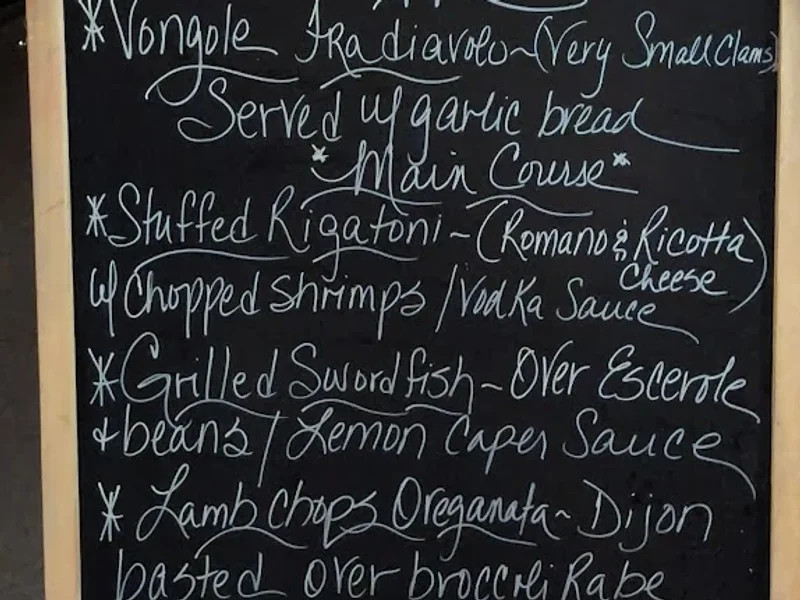 *Vongole Fradiavolo~(Very Small Clams)
Served w/ garlic bread
*Main Course*
*Stuffed Rigatoni~(Romano & Ricotta Cheese)
w/ Chopped shrimps / Vodka Sauce
*Grilled Swordfish~Over Escerole
+beans / Lemon Caper Sauce
*Lamb Chops Oreganata~Dijon
basted over broccoli Rabe